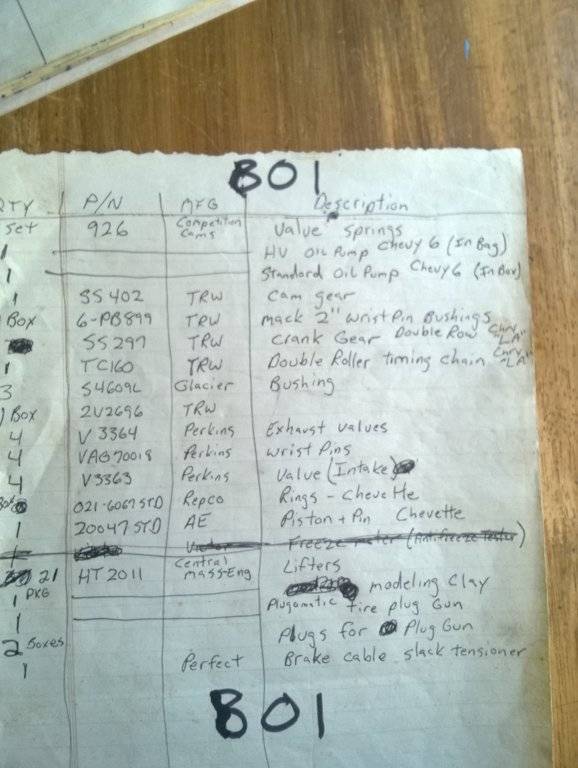 BO1
QTY P/N MFG Description
set 926 Competition Cams Value springs
1 HV Oil Pump Chevy 6 (In Bag)
1 Standard Oil Pump Chevy 6 (In Box)
1 SS402 TRW Cam gear
Box 6-PB899 TRW mack 2" wrist Pin Bushings
SS297 TRW Crank Gear Double Row Chry "LA"
1 TC160 TRW Double Roller timing chain Chry "LA"
3 S4609L Glacier Bushing
Box 2V2696 TRW
4 V3364 Perkins Exhaust values
4 VAG70018 Perkins wrist Pins
4 V3363 Perkins Value (Intake)
Box 021-6067STD Repco Rings - Chevette
1 20047STD AE Piston + Pin Chevette
1 Victor Freeze meter (Antifreeze Tester)
21 HT2011 Central Mass-Eng Lifters
1 PKG modeling Clay
1 Plugamatic tire plug Gun
2 Boxes Plugs for Plug Gun
1 Perfect Brake cable slack tensioner
BO1